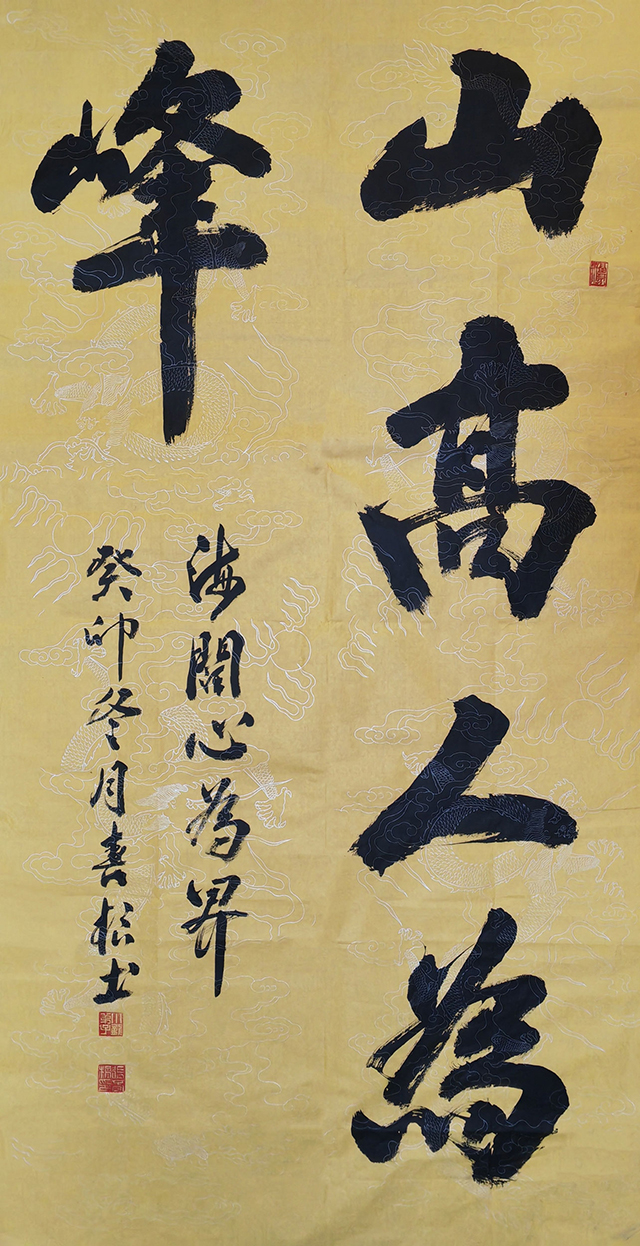 山高人為
峰
海闊心為界
癸卯冬月喜松书